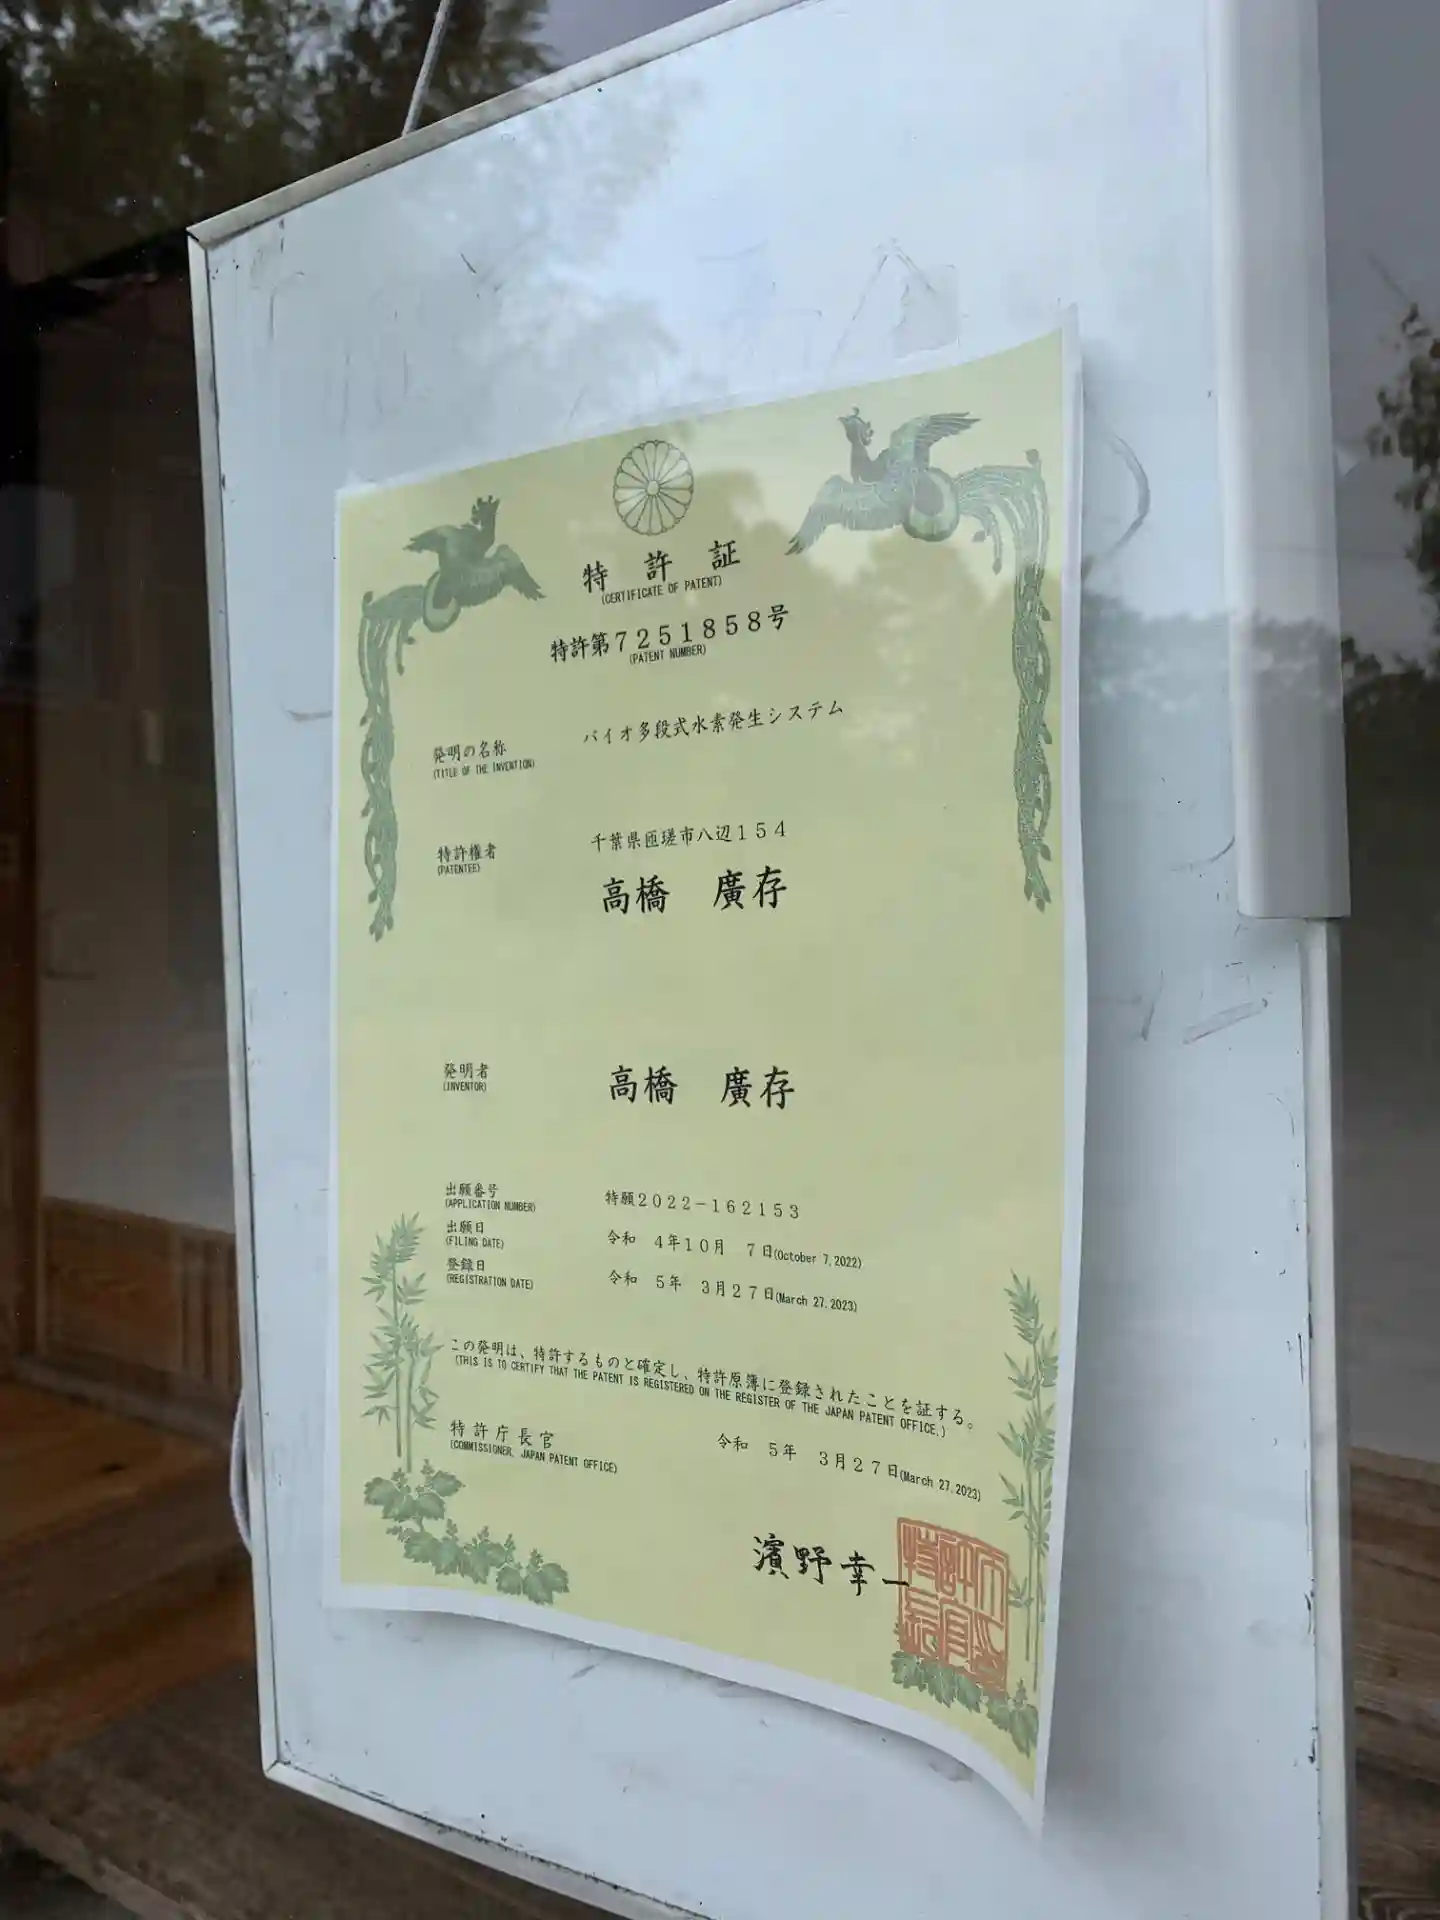 特許証
(CERTIFICATE OF PATENT)
特許第7251858号
(PATENT NUMBER)
発明の名称 バイオ多段式水素発生システム
(TITLE OF THE INVENTION)
特許権者 千葉県匝瑳市八辺154
(PATENTEE)
高橋 廣存
発明者 高橋 廣存
(INVENTOR)
出願番号 特願2022-162153
(APPLICATION NUMBER)
出願日 令和 4年10月 7日(October 7,2022)
(FILING DATE)
登録日 令和 5年 3月27日(March 27,2023)
(REGISTRATION DATE)
この発明は、特許するものと確定し、特許原簿に登録されたことを証する。
(THIS IS TO CERTIFY THAT THE PATENT IS REGISTERED ON THE REGISTER OF THE JAPAN PATENT OFFICE.)
特許庁長官 令和 5年 3月27日(March 27,2023)
(COMMISSIONER, JAPAN PATENT OFFICE)
濱野幸一